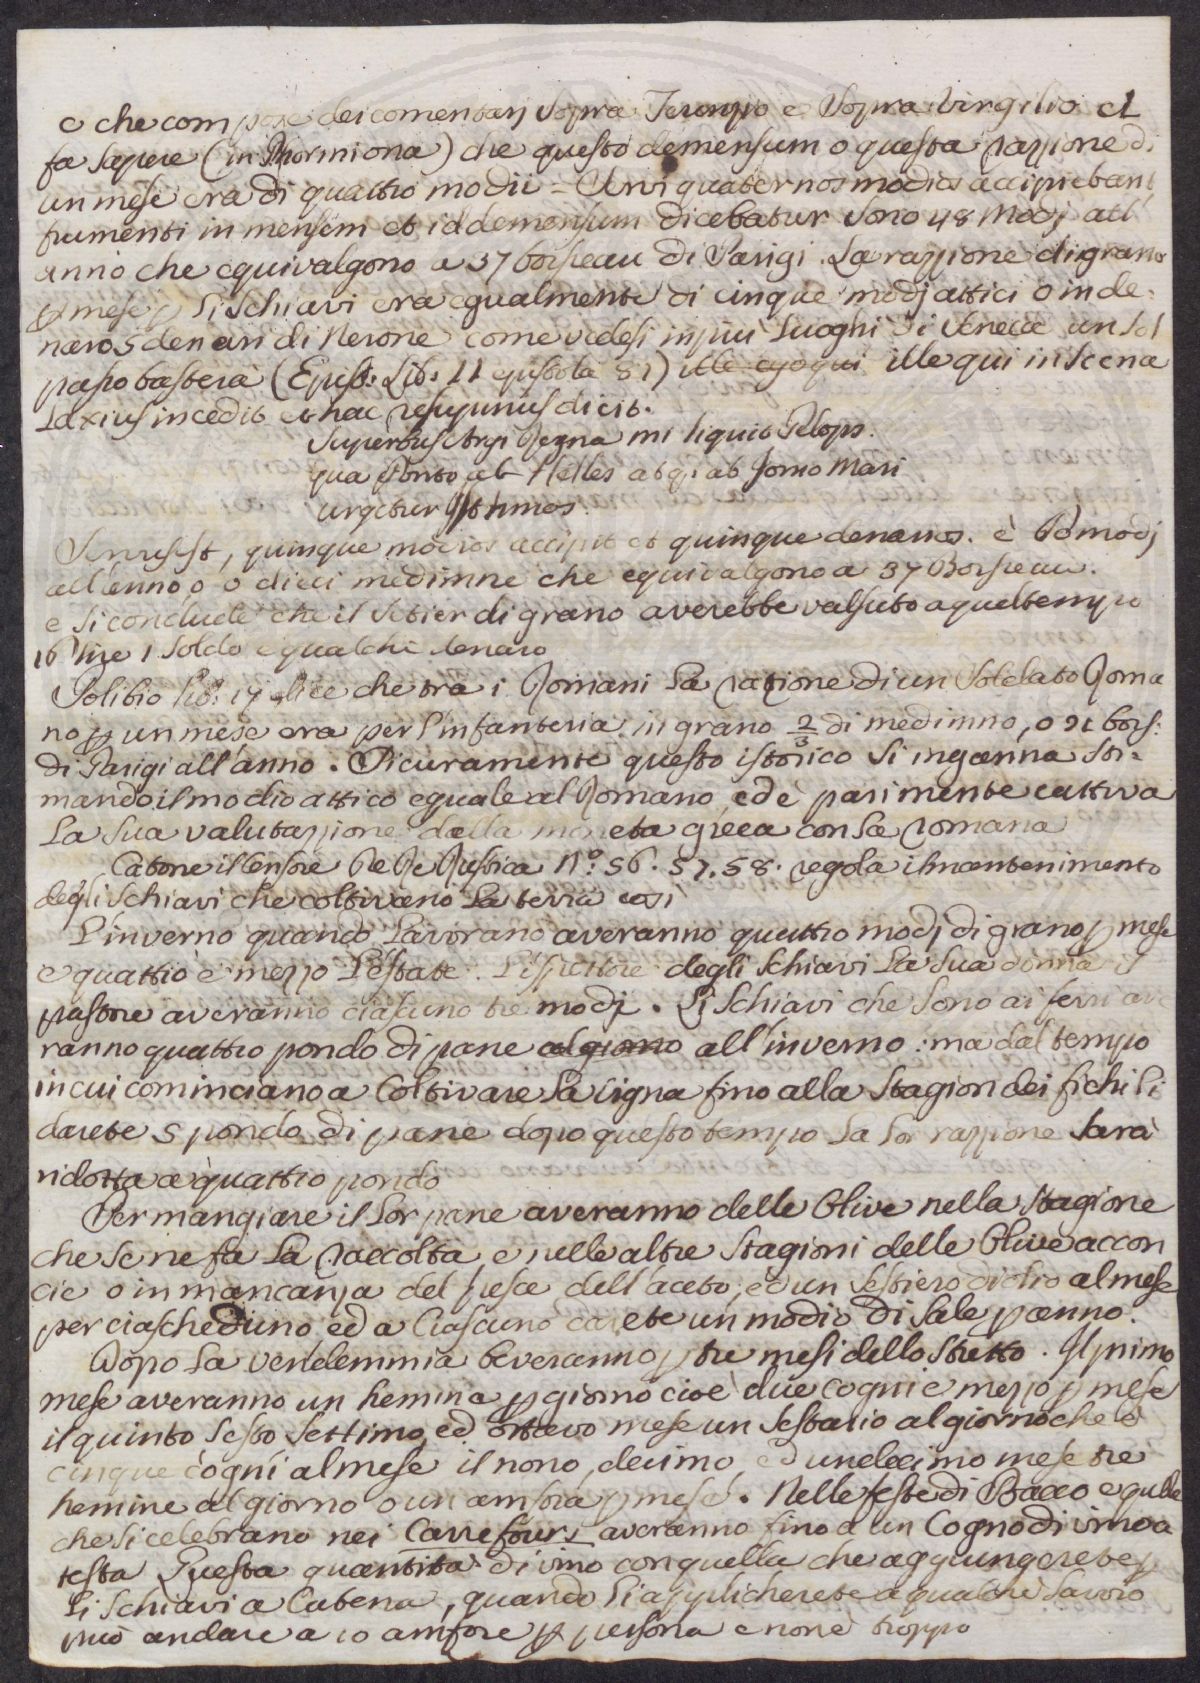 e che compose dei comentarj sopra Terenzio e sopra Virgilio ci
fa sapere (in Phormiona) che questo demensum o questa razzione di
un mese era di quattro modii = Servi quaternos modios accipiebant
frumenti in mensem et id demensum dicebatur sono 48 Modj all'
anno che equivalgono a 37 boisseau di Parigi. La razzione di grano
p mese p li schiavi era egualmente di cinque modj attici o in de=
naro 5 denari di Nerone come vedesi in più luoghi di Seneca un sol
passo basterà (Epist: Lib: 11 epistola 81) ille qui in scena
Laxius incedit et hac resupinus dicit.
Superbus Argi Regna mi liquit Pelops.
qua Ponto ab Helles atq: ab Jonio Mari
urgetur Istimos.
Servus est, quinque modios accipit et quinque denarios. è 60 modj
all'anno, o dieci medimne che equivalgono a 37 Boisseau.
e si conclude che il Setier di grano averebbe valsuto a quel tempo
16 lire 1 soldo e qualche denaro
Polibio lib: 17 dice che tra i Romani La razione di un Soldato Roma
no p un mese era per l'infanteria in grano 2/3 di medimno, o 21 bois:
di Parigi all'anno. Sicuramente questo istorico si inganna sti=
mando il modio attico eguale al Romano, ed è parimente cattiva
La sua valutazzione dalla moneta greca con La romana
Catone il Censore De Re Rustica N.o 56. 57. 58. regola il mantenimento
degli schiavi che coltivano La terra così
L'inverno quando Lavorano averanno quattro modj di grano p mese
e quattro e mezzo L'estate. L'ispettore degli schiavi La sua donna il
pastore averanno ciascuno tre modj. Li Schiavi che sono ai ferri ave
ranno quattro pondo di pane al giorno all'inverno: ma dal tempo
in cui cominciano a Coltivare La vigna fino alla Stagion dei fichi li
darete 5 pondo di pane dopo questo tempo La Lor razzione sarà
ridotta a quattro pondo
Per mangiare il Lor pane averanno delle Olive nella Stagione
che se ne fa La raccolta, e nelle altre Stagioni delle Olive accon
cie o in mancanza del pesce dell'aceto, ed un sestiero di olio al mese
per ciascheduno ed a Ciascuno darete un modio di Sale p anno.
Dopo La vendemmia beveranno p tre mesi dello Stretto. Il primo
mese averanno un hemina p giorno cioè due cogni e mezzo p mese
il quinto sesto settimo, ed ottavo mese un Sestario al giorno che è
cinque cogni al mese il nono, decimo, ed undecimo mese tre
hemine al giorno o un amfora p mese. Nelle feste di Bacco e quelle
che si celebrano nei Carrefours averanno fino a un Cogno di vino a
testa Questa quantità di vino con quella che aggiungerete p
Li Schiavi a Catena, quando li applicherete a qualche Lavoro
può andare a 10 amfore p persona e non è troppo